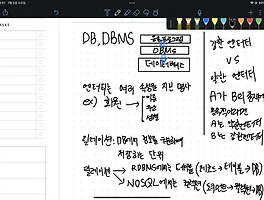 DB, DBMS
응용프로그램
DBMS
데이터베이스
엔터티는 여러 속성을 지닌 명사
ex) 회원
이름
주소
릴레이션: DB에서 정보를 구분하여
저장하는 단위
릴레이션
RDBMS에서는 테이블 (레코드→테이블→DB)
NOSQL에서는 컬렉션
강한 엔터티
VS
약한 엔터티
A가 B의 존재에
A는 약한엔터티
B는 강한엔터티